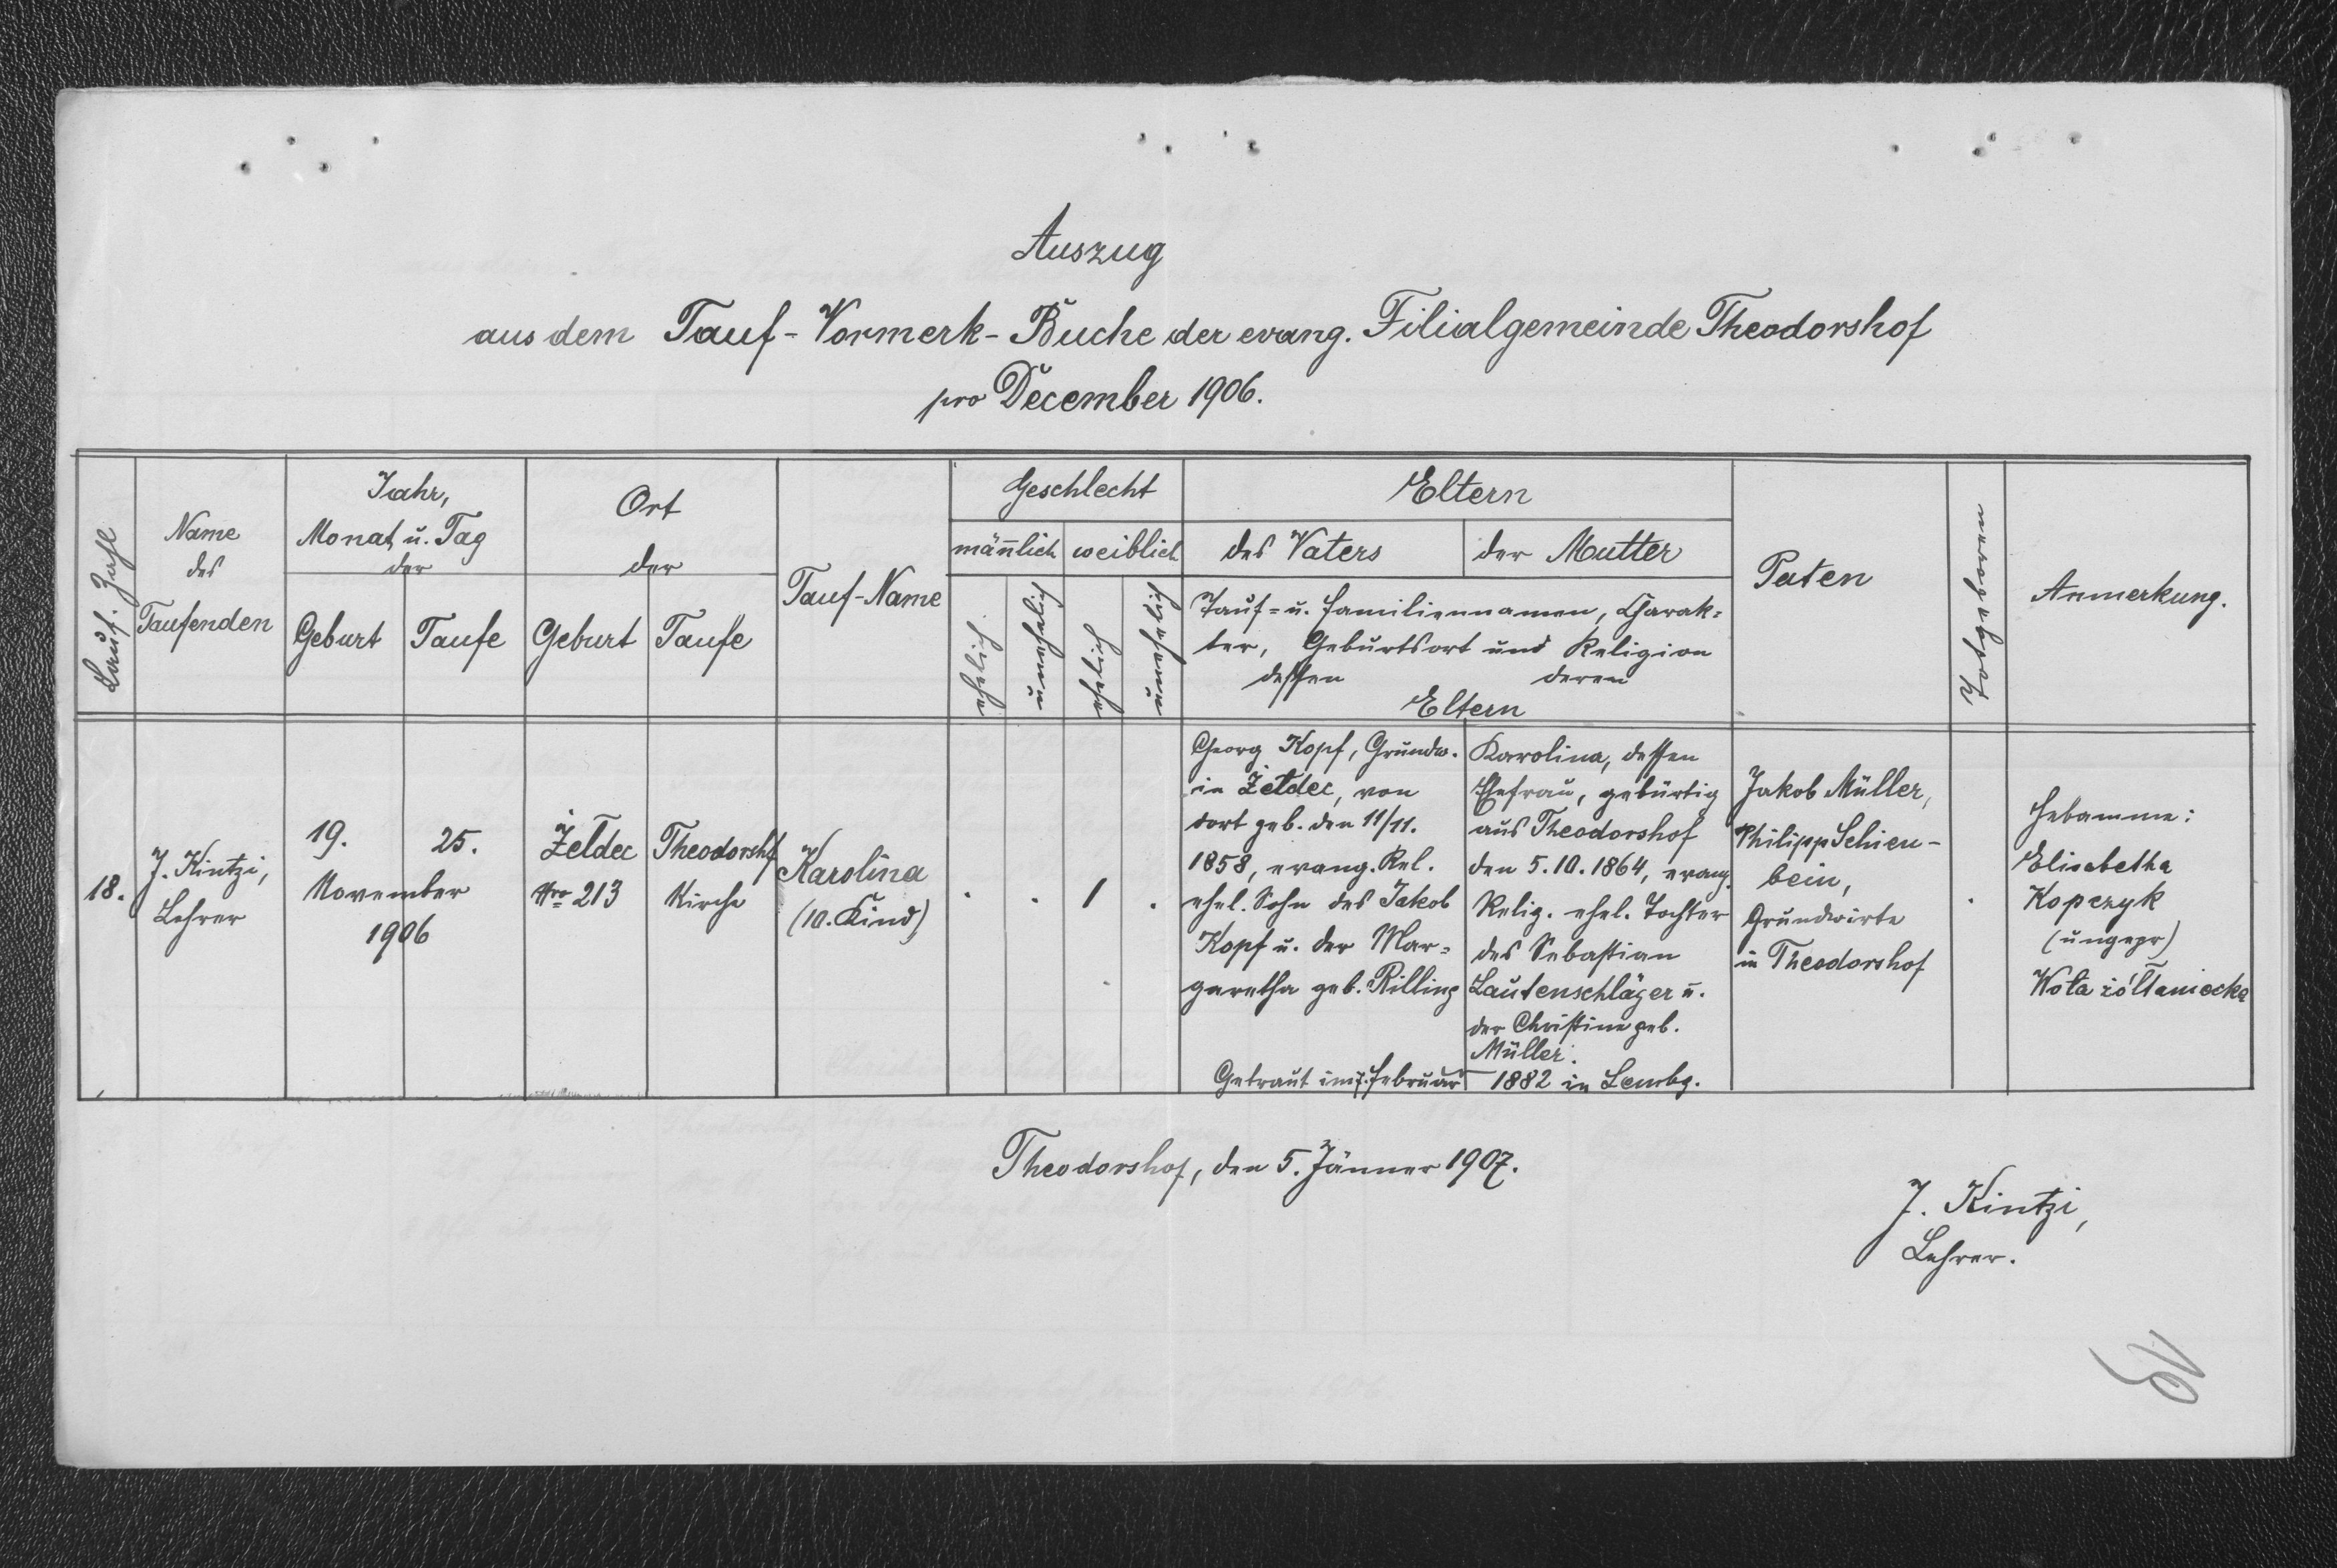 Auszug
aus dem Tauf-Vormerk-Buche der evang. Filialgemeinde Theodorshof
pro December 1906.
Lauf. Zahl
Name
des
Taufenden
Jahr,
Monat u. Tag
der
Geburt
Taufe
Ort
der
Geburt
Taufe
Tauf-Name
Geschlecht
männlich
weiblich
ehelich
unehelich
ehelich
unehelich
Eltern
des Vaters
der Mutter
Tauf- u. Familiennamen, Charak-
ter, Geburtsort und Religion
dessen
deren
Eltern
Paten
Totgeboren
Anmerkung.
18.
J. Kintzi,
Lehrer
19.
25.
November
1906
Żełdec
Nro 213
Theodorshof
Kirche
Karolina
(10. Kind)
1
Georg Kopf, Grundw.
in Żełdec, von
dort geb. den 11/11.
1858, evang. Rel.
ehel. Sohn des Jakob
Kopf u. der Mar-
garetha geb. Rilling
Karolina, dessen
Ehefrau, gebürtig
aus Theodorshof
den 5.10.1864, evang.
Relig. ehel. Tochter
des Sebastian
Lautenschläger u.
der Christine geb.
Müller.
Getraut im 7. Februar 1882 in Lembg.
Jakob Müller,
Philipp Schien-
bein,
Grundwirte
in Theodorshof
Hebamme:
Elisabetha
Kopczyk
(ungepr)
Wola żółtaniecka
Theodorshof, den 5. Jänner 1907.
J. Kintzi,
Lehrer.